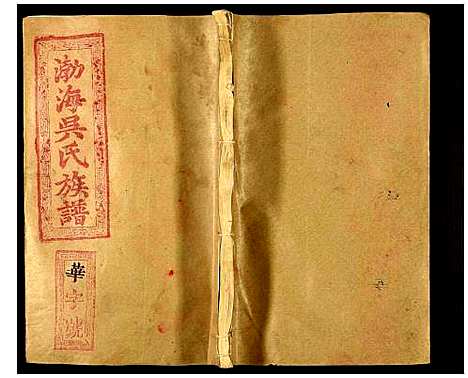 渤海吳氏族譜
華字號